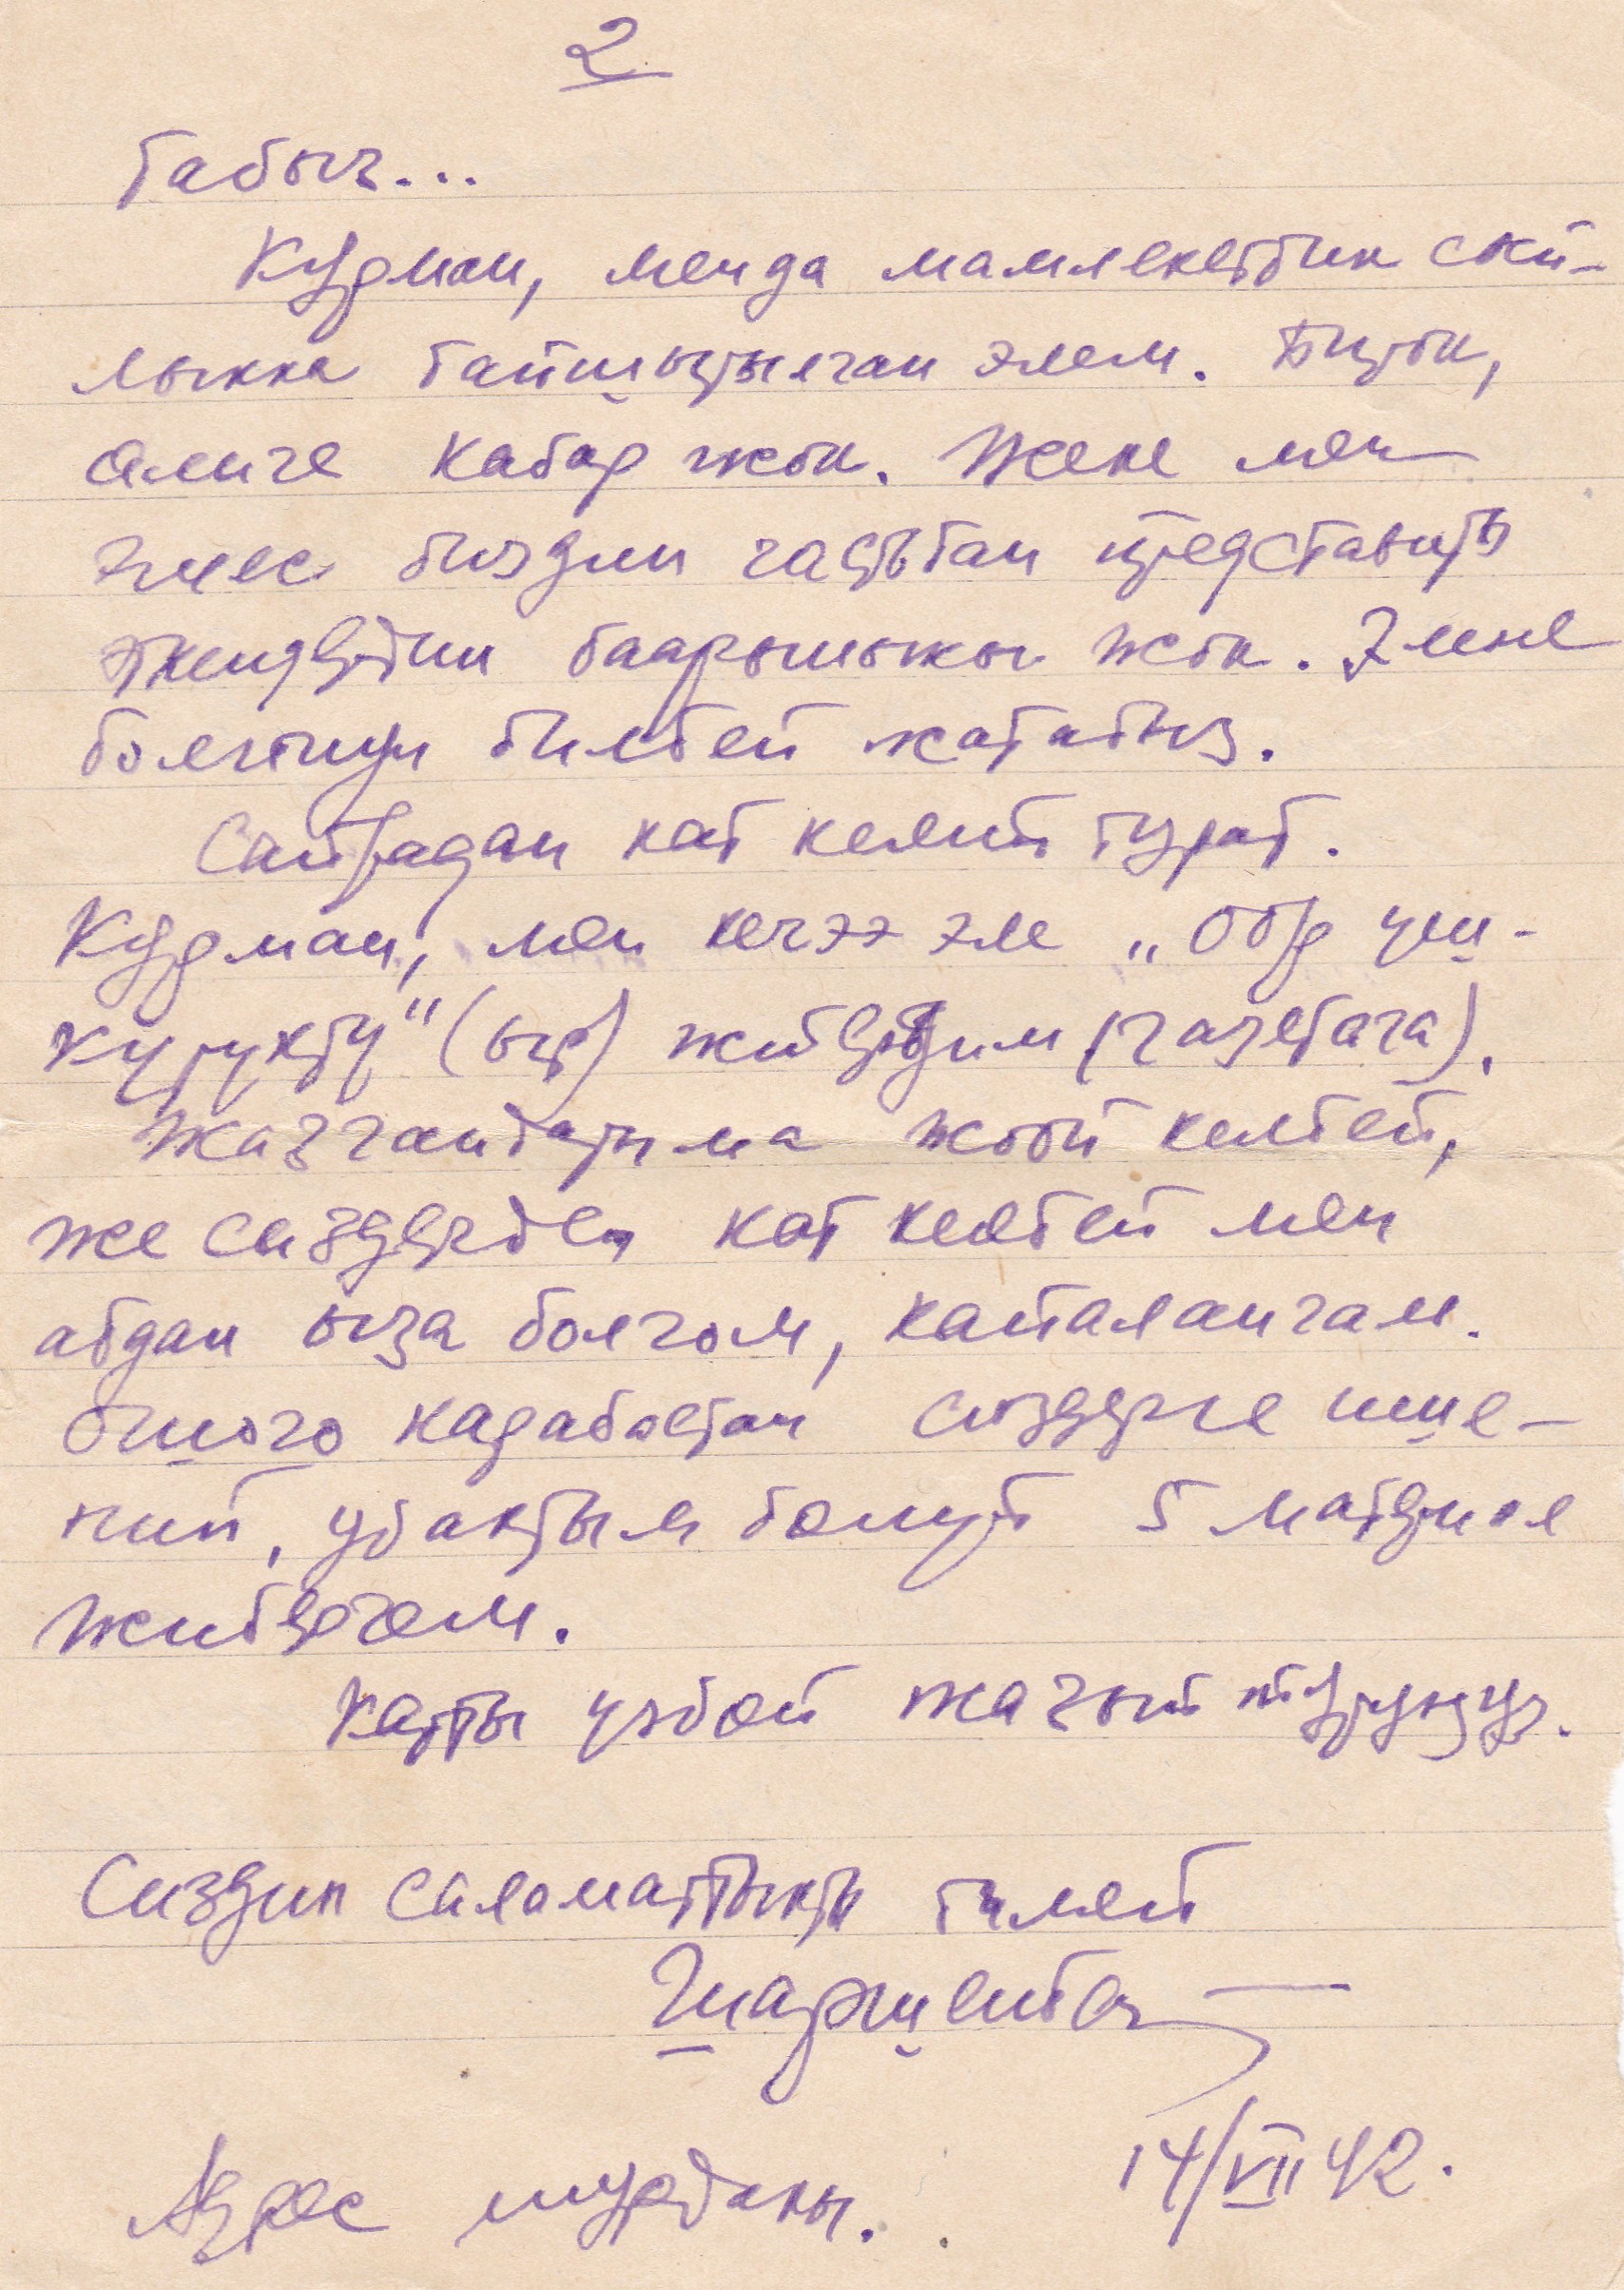 2
табыз...
Курман, менда мамлекеттик сый-
лыкка тапшырылган элем. Бирок,
алиге кабар жок. Жеке мен
эмес биздин частьтан представить
эткендердин баарыныкы жок. Эмне
болгонун билбей жатабыз.
Сайрадан кат келип турат.
Курман, мен кечээ эле „Оор уш-
куруктү" (ыр) жибердим (газетага).
Жазгандарыма жооп келбей,
же сиздерден кат келбей мен
абдан ыза болгом, капалангам.
Ошого карабастан сиздерге ише-
нип, убактым болуп 5 материал
жибергем.
Катты үзбөй жазып турунуз.
Сиздин саламаттыкты тилеп
Шаршенбаев
14/VII 42.
Адрес мурдакы.